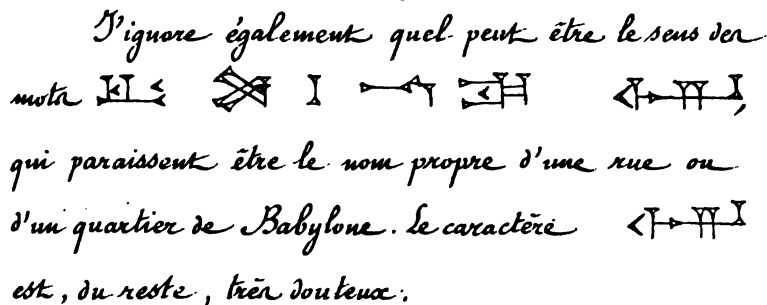 J'ignore également quel peut être le sens des
mots ,
qui paraissent être le nom propre d'une rue ou
d'un quartier de Babylone. Le caractère
est, du reste, très douteux.